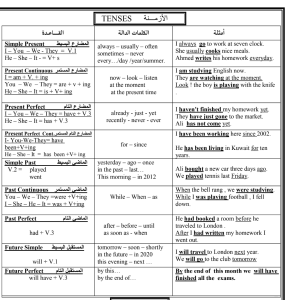 TENSES الأزمنة
القاعدة الكلمات الدالة أمثلة
Simple Present المضارع البسيط
I – You – We – They = V.1
He – She – It - = V+ s
always – usually – often
sometimes – never
every…day /year/summer.
I always go to work at seven clock.
She usually cooks nice meals.
Ahmed writes his homework everyday.
Present Continuous المضارع المستمر
I = am + V. + ing
You – We – They = are + v + ing
He – She – It = is + V+ ing
now – look – listen
at the moment
at the prosont time
I am studying English now.
They are watching at the moment.
Look ! the boy is playing with the knife
Present Perfect المضارع التام
I – You – We – They = have + V.3
He – She – It = has + V.3
already - just - yet
recently - never - ever
I haven't finished my homework yet.
They have just gone to the market.
Ali has not come yet.
Present Perfect Cont. المضارع التام المستمر
I- You-We-They= have
been+V+ing
He – She - It = has been +V+ ing
for – since
I have been working here since 2002.
He has been living in Kuwait for ten
years.
Simple Past الماضي البسيط
V.2 = played
went
yesterday – ago – once
in the past – last…
This morning – in 2012
Ali bought a new car three days ago.
We played tennis last Friday.
Past Continuous الماضي المستمر
You – We – They =were +V+ing
I – She – He – It = was + V+ing
While – When – as
When the bell rang , we were studying.
While I was playing football , I fell
down.
Past Perfect الماضي التام
had + V.3
after – before – until
as soon as - when
He had booked a room before he
traveled to London .
After I had written my homework I
went out.
Future Simple المستقبل البسيط
will + V.1
tomorrow – soon – shortly
in the future – in 2020
this evening - next …
I will travel to London next year.
We will go to the club tomorrow
Future Perfect المستقبل التام
will have + V.3
by this…
by the end of…
By the end of this month we will have
finished all the exams.